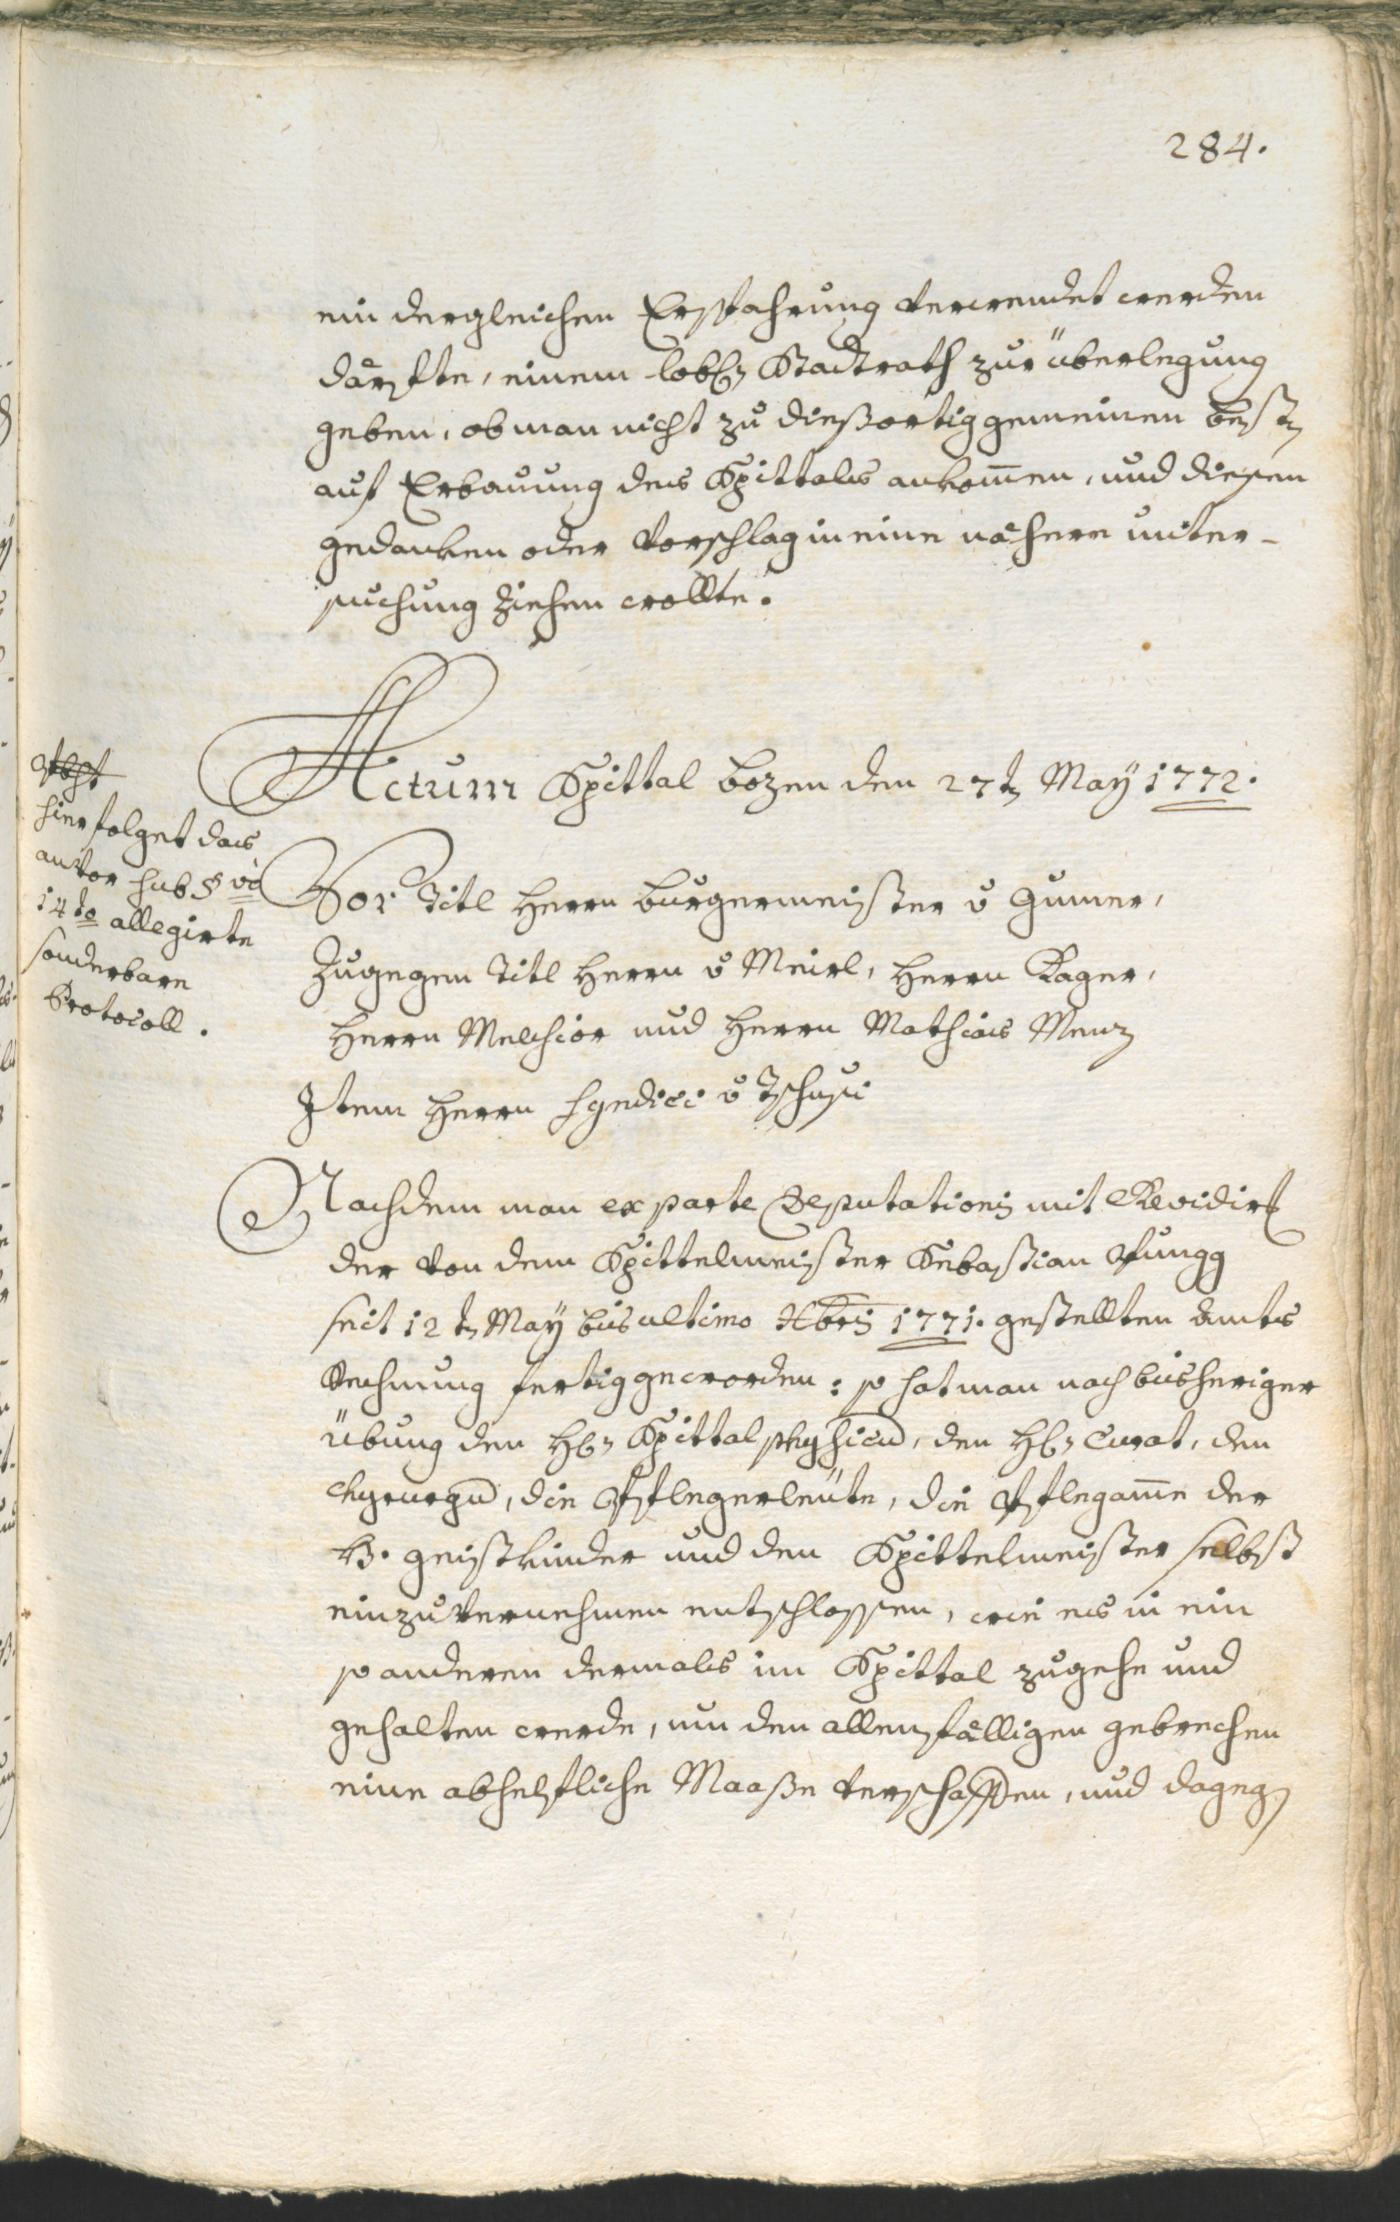 284.
ein dergleichen Ersfahrung verwendet werden
därfte, einem lobl. Stadtrath zur überlegung
geben, ob man nicht zu diesortig gemeinen besten
auf Erbauung des Spittals ankom̄en, und diesen
gedanken oder vorschlag in eine nähere unter-
suchung ziehen wollte.
Actum Spittal bozen den 27tn May 1772.
hier folget das
anvor sub §vo
14to allegirte
sonderbare
Protocoll.
Vor Titl Herrn burgermeister v Gumer,
Zugegen Titl Herrn v Meirl, Herrn Kager,
Herrn Melchior und Herrn Mathias Menz
Item Herrn Syndici v Tschusi
Nachdem man ex parte Deputationis mit Revidirung
der von dem Spittelmeister Sebastian Pfungg
seit 12tn May bis ultimo Xbris 1771. gestellten Amts
Rechnung fertig geworden: so hat man nach bisheriger
Übung den H. Spittal physicum, den H. Curat, den
Chyrurgum, die Pflegerleüte, die Pflegam̄e der
H. geistkinder und den Spittelmeister selbst
einzuvernehmen entschlossen, wie es in ein
so anderen dermals im Spittal zugehe und
gehalten werde, um den allensfälligen gebrechen
eine abhelfliche Maaße verschaffen, und dagegen